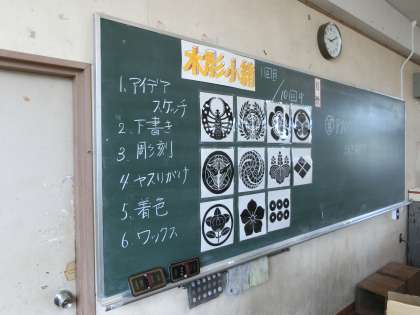 木彫小箱
1回目
/10回中
1.アイデア
スケッチ
2.下書き
3.彫刻
4.ヤスリがけ
5.着色
6.ワックス